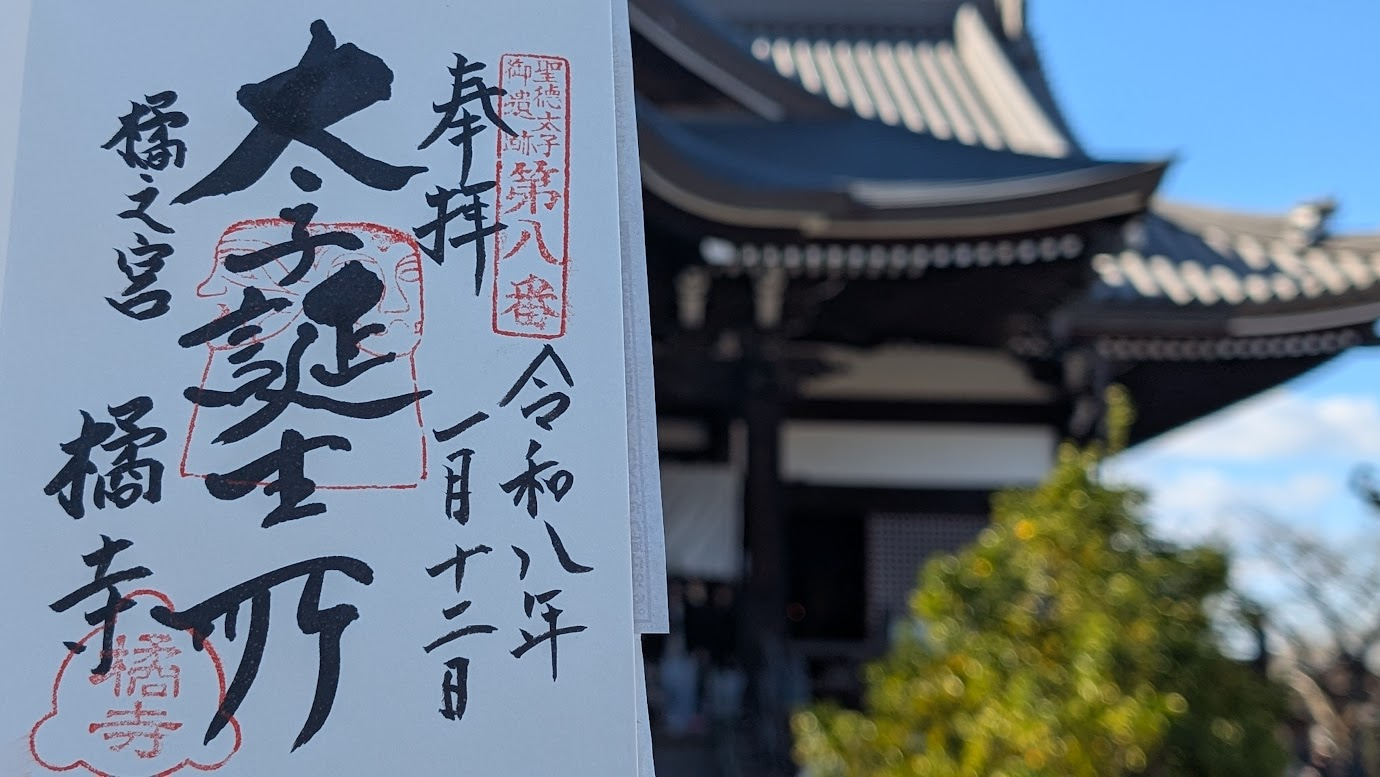 聖徳太子
御遺跡
第八番
奉拝
令和八年
一月十二日
太子誕生所
橘之宮
橘寺
橘寺